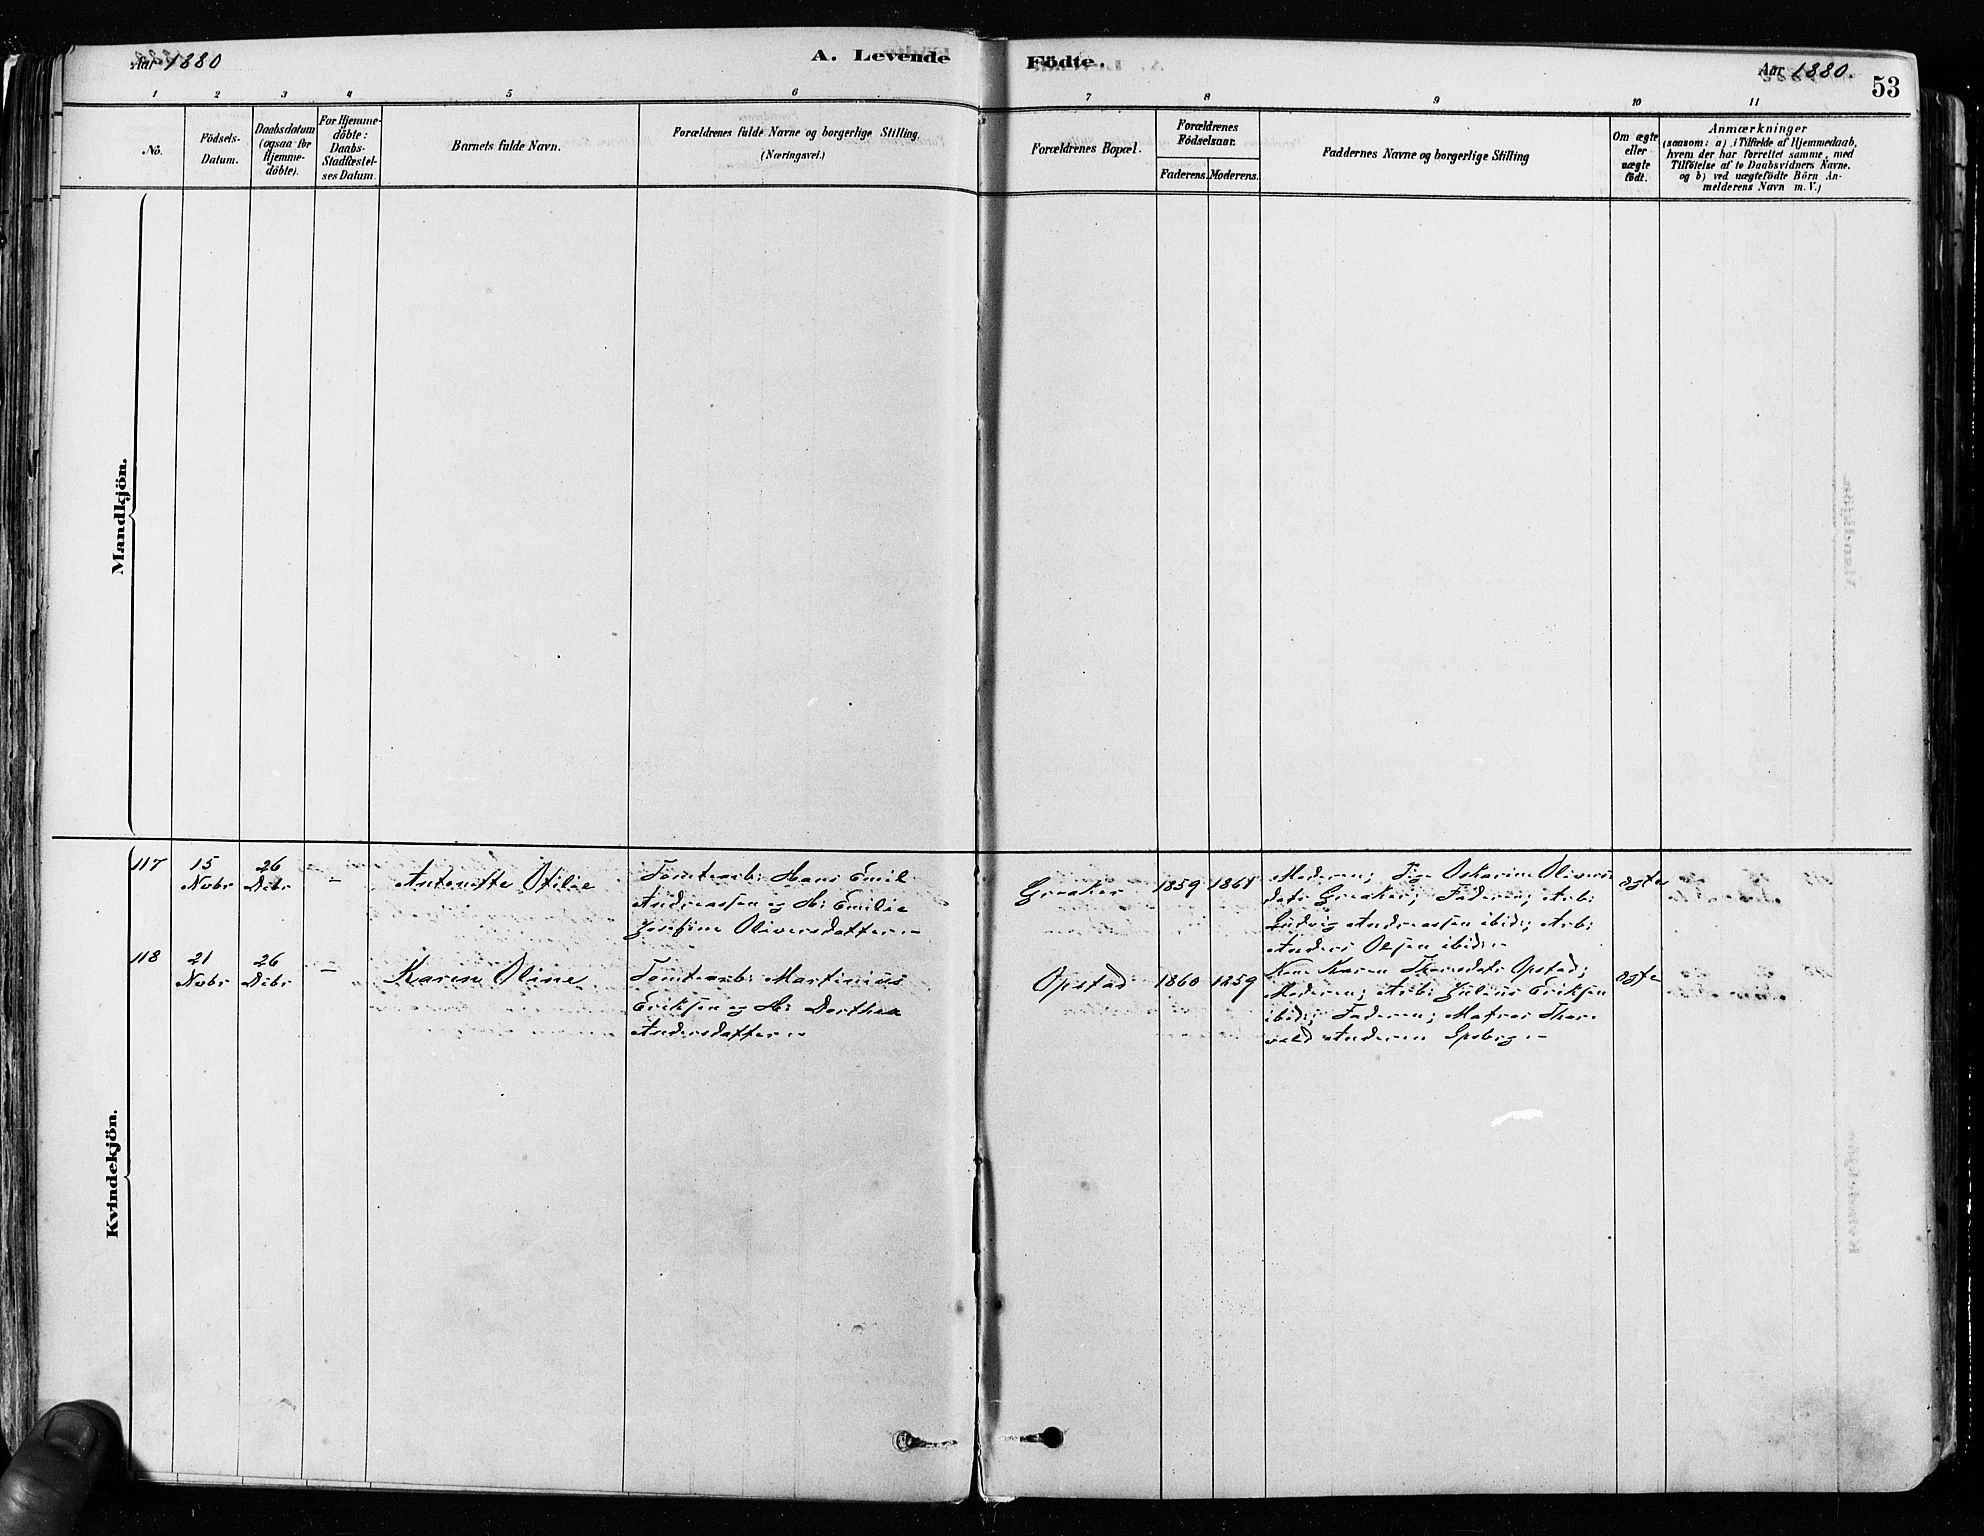 Aar 1880
A. Levende
Födte.
Aar 1880.
53
1 2 3 4 5 6 7 8 9 10 11
No.
Födsels-
Datum.
Daabsdatum
(ogsaa for
Hjemme-
döbte).
For Hjemme-
döbte:
Daabs-
Stadfæstel-
ses Datum.
Barnets fulde Navn.
Forældrenes fulde Navne og borgerlige Stilling.
(Næringsvei.)
Forældrenes Bopæl.
Forældrenes
Födselsaar.
Faderens. Moderens.
Faddernes Navne og borgerlige Stilling
Om ægte
eller
uægte
födt.
Anmærkninger
(saasom: a) i Tilfælde af Hjemmedaab,
hvem der har forrettet samme, med
Tilföielse af to Daabsvidners Navne.
og b) ved uægtefödte Börn An-
melderens Navn m. V.)
Mandkjön.
Kvindekjön.
117
15
Nvbr
26
Dcbr
-
Antonette Otilie
Tomtearb: Hans Emil
Andreassen og H: Emilie
Josefine Oliversdatter.-
Greaker
1859
Moderen; Pige Oskarine Olivers
datr Greaker; Faderen; Arb:
Ludvig Andreassen ibid:; Arb:
Anders Olsen ibid:-
ægte
118
21
Nvbr
26
Dcbr
-
Karen Oline
Tomtearb: Martinius
Eriksen og H: Dorthea
Andersdatter.-
Opstad
1860
1259
Kone Karen datr Opstad;
Moderen; Arb: Julius Eriksen
ibid:; Faderen; Matros Thor
vald Andersen
ægte